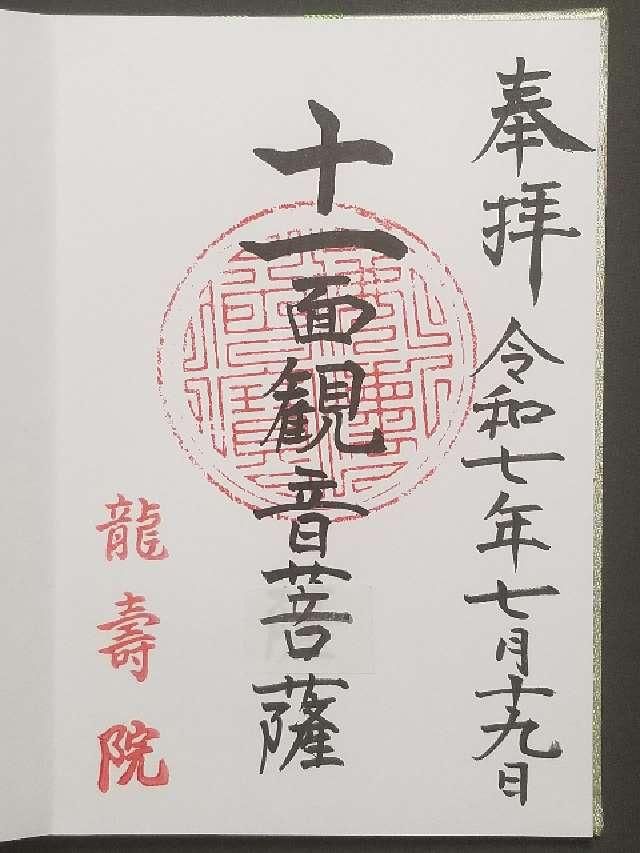 奉拝 令和七年七月十九日
十一面観音菩薩
龍壽院